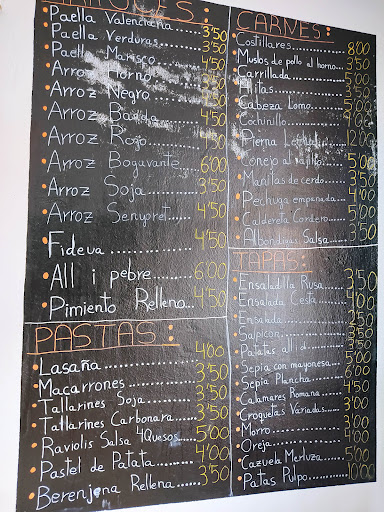 Paella Valenciana ........ 3'50
Paella Verduras ........ 3'50
Paella Marisco ........ 4'50
Arroz Horno ........ 3'50
Arroz Negro ........ 4'50
Arroz
Arroz Rojo
Arroz Bogavante ........ 6'00
Arroz Soja ........ 3'50
Arroz Senyoret ........ 4'50
Fideua ........ 4'50
All i pebre ........ 6'00
Pimiento Relleno ........ 4'50
PASTAS:
Lasaña ........ 4'00
Macarrones ........ 3'50
Tallarines Soja ........ 3'50
Tallarines Carbonara ........ 3'50
Raviolis Salsa 4Quesos ........ 5'00
Pastel de Patata ........ 4'00
Berenjena Rellena ........ 3'50
CARNES:
Costillares ........ 8'00
Muslos de pollo al horno ... 3'50
Carrillada ........ 5'00
Alitas
Cabeza Lomo ........ 5'00
Cochinillo
Pierna
Conejo al ajillo ... 5'00
Manitas de cerdo ... 3'50
Pechuga empanada ... 4'00
Caldereta Cordero ... 5'00
Albondigas Salsa ... 3'50
TAPAS:
Ensaladilla Rusa ... 3'50
Ensalada ... 4'00
Ensalada ........ 3'50
Salpicon ........ 3'50
Patatas all i
Sepia con mayonesa ... 6'00
Sepia Plancha ........ 5'00
Calamares Romana ... 4'50
Croquetas Variadas ... 3'50
Morro ........ 3'00
Oreja ........ 4'00
Cazuela Merluza ... 5'00
Patas Pulpo ........ 10'00